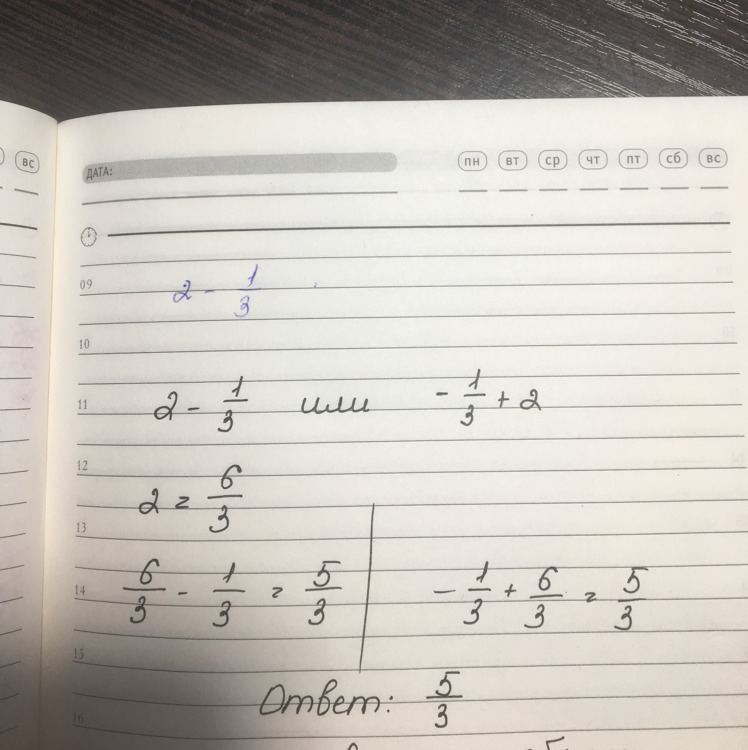 вс
ДАТА: пн вт ср чт пт сб вс
09 2 - 1/3
10
11 2 - 1/3 или - 1/3 + 2
12
2 = 6/3
13
14 6/3 - 1/3 = 5/3 - 1/3 + 6/3 = 5/3
15
Ответ: 5/3
16